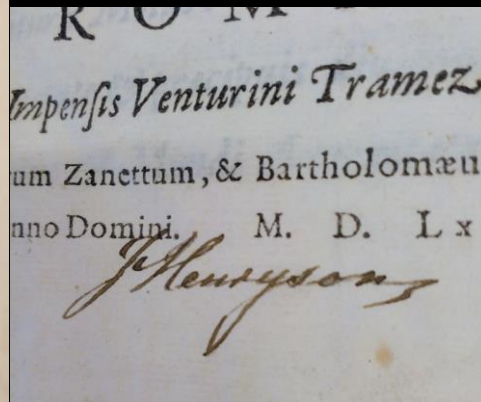 R O M
Impensis Venturini Tramez
rum Zanettum, & Bartholomæu
nno Domini. M. D. Lx
J Henryson